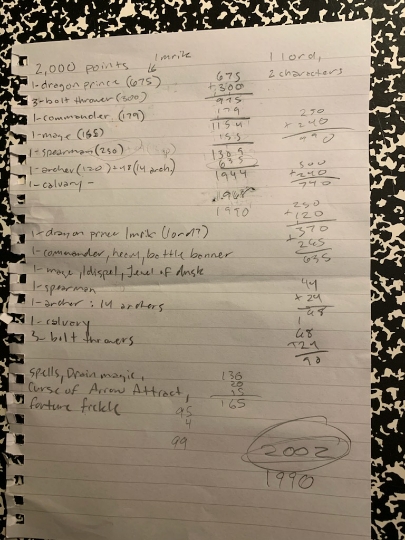 1mrik 1 lord,
2,000 points 16 2 characters
1-dragon prince (675) 675
3-bolt thrower (300) +300
975
1-commander, (179) 179
1154 250
1-mage (155) 155 +240
1-spearman (250) 1309
1-archer (120) + 48 (14 arch) 635 500
1-calvary - 1944 +240
740
1990 250
+120
1-dragon prince 1mrik (lord?) 370
1-commander, heal, battle banner 265
1-mage, 1dispel, Jewel of dusk 635
1-spearman 44
1-archer : 14 archers +24
1-calvary
3-bolt throwers 68
+24
spells, Drain magic, 130
Curse of Arrow Attract, 20
fortune fickle 15
165
95
4
99
2002
1990